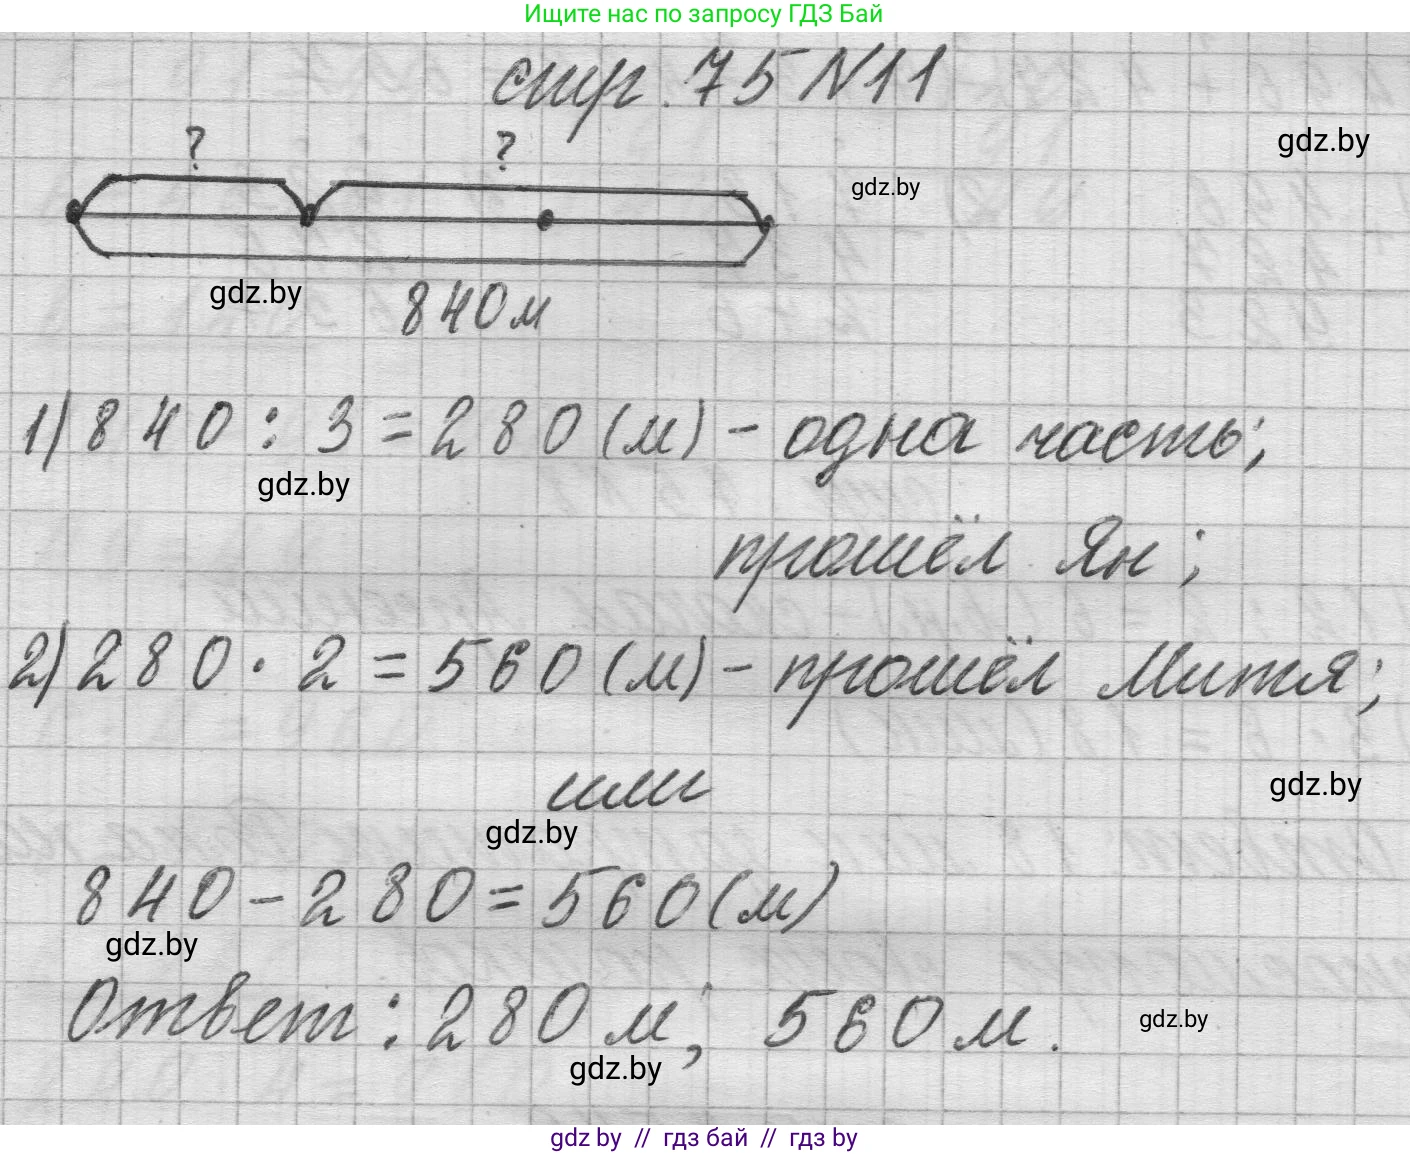 Ищите нас по запросу ГДЗ Бай
стр. 75 N11
gdz.by
? ?
gdz.by
gdz.by
840м
1) 840 : 3 = 280 (м) - одна часть;
gdz.by
прошёл Ян;
2) 280 · 2 = 560 (м) - прошёл Митя;
или
gdz.by
gdz.by
840 - 280 = 560 (м)
gdz.by
Ответ: 280 м; 560 м.
gdz.by
gdz.by
gdz by // гдз бай // гдз by